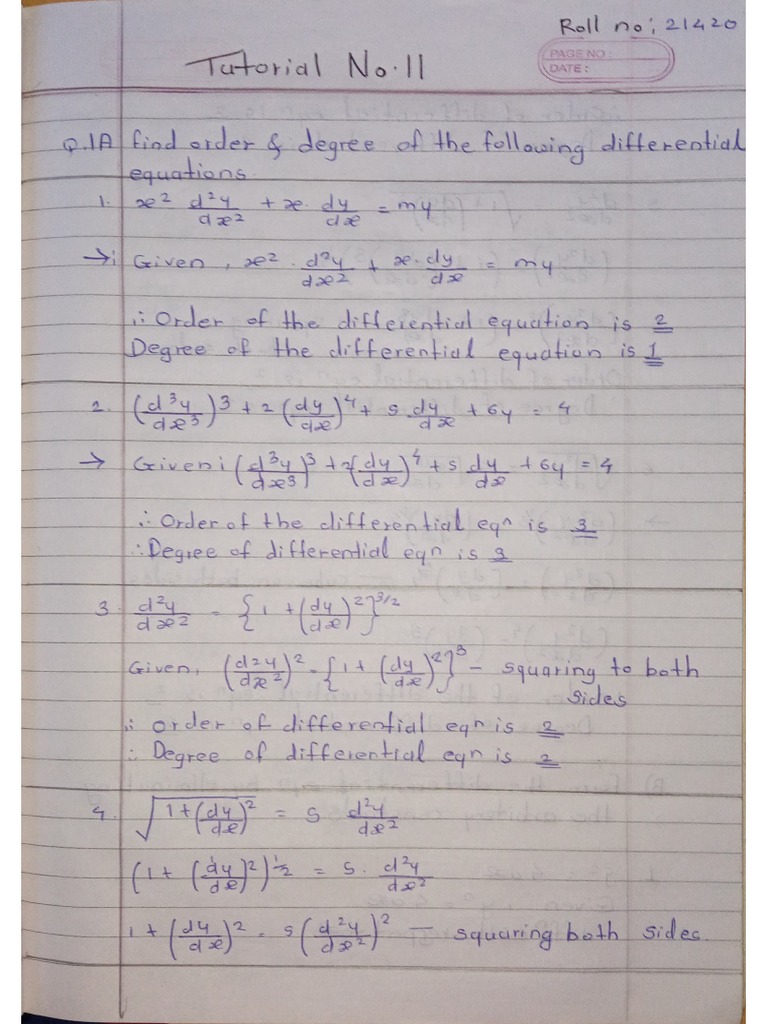 Roll no: 21420
PAGE NO:
DATE:
Tutorial No. 11
Q.1A find order & degree of the following differential
equations.
1. x² d²y/dx² + x. dy/dx = my
→: Given, x² . d²y/dx² + x. dy/dx = my
∴ Order of the differential equation is 2
Degree of the differential equation is 1
2. (d³y/dx³)3 + 2(dy/dx)4 + 5 dy/dx + 6y = 4
→ Given: (d³y/dx³)3 + 2(dy/dx)4 + 5 dy/dx + 6y = 4
∴ Order of the differential eqn is 3
∴ Degree of differential eqn is 3
3. d²y/dx² = {1 + (dy/dx)²}3/2
Given, (d2y/dx²)² = {1 + (dy/dx)²}³ - squaring to both
sides
∴ order of differential eqn is 2
∴ Degree of differential eqn is 2
4. √1+(dy/dx)² = 5 d²y/dx²
(1 + (dy/dx)²)1/2 = 5. d²y/dx²
1 + (dy/dx)² = 5(d²y/dx²)² — squaring both sides.